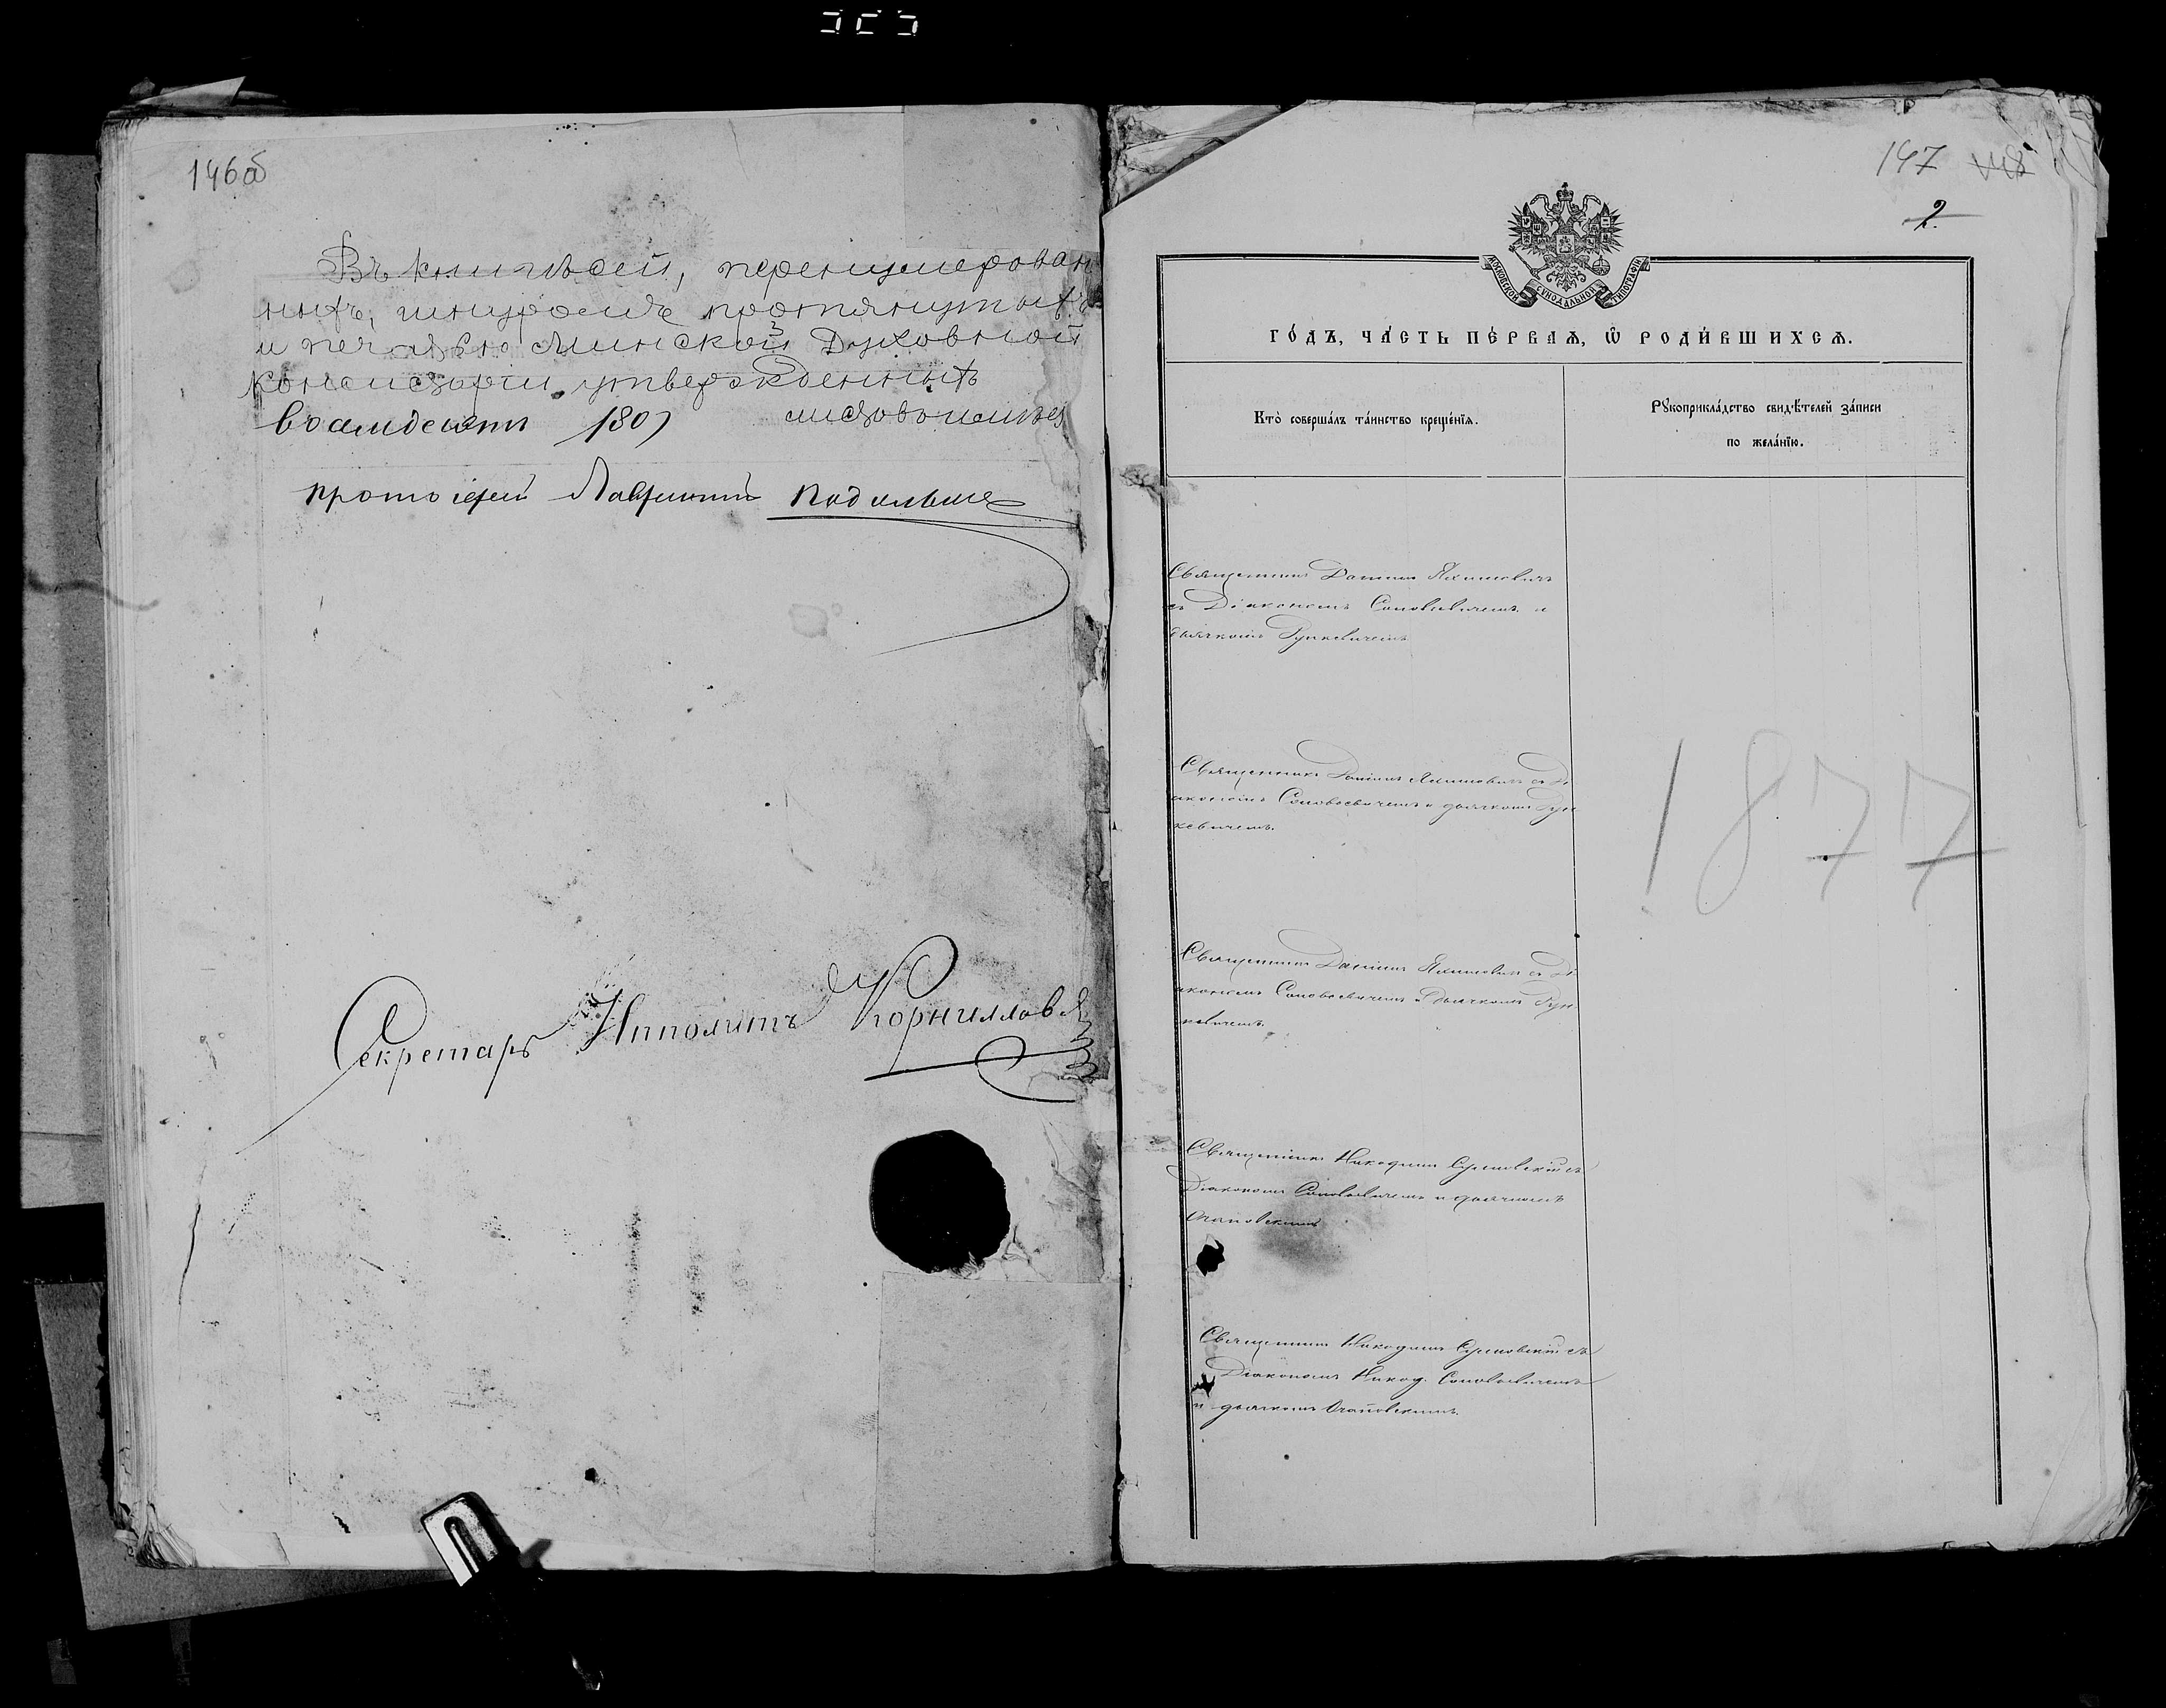 146об
Въ книгѣ сей, перенумерован
ныхъ, шнуромъ протянутыхъ
и печатью Минской Духовной
Консисторіи утвержденныхъ
восемдесятъ /80/ листовъ имѣе
протоіерей Лаврентій
Секретарь Ипполитъ Корнилловъ
147
2.
МОСКОВСКОЙ СѴНОДАЛЬНОЙ ТИПОГРАФІИ
ГО́ДЪ, ЧА́СТЬ ПЕ́РВАѦ, Ѽ РОДИ́ВШИХСѦ.
Кто̀ соверша́лъ та́инство креще́нїѧ.
Рꙋкоприкла́дство свидѣ́телей за́писи
по жела́нїю.
Священникъ Даніилъ Яхимовичъ
съ Діакономъ Соловьевичемъ и
дьячкомъ Рункевичемъ
Священникъ Даніилъ Яхимовичъ съ Ді
акономъ Соловьевичемъ и дьячкомъ Рун
кевичемъ.
Священникъ Даніилъ Яхимовичъ съ Ді
акономъ Соловьевичемъ и дьячкомъ Рун
кевичемъ.
1877
Священникъ Никодимъ съ
Діакономъ Соловьевичемъ и дьячкомъ
Священникъ Никодимъ съ
Діакономъ Никод. Соловьевичемъ
и дьячкомъ